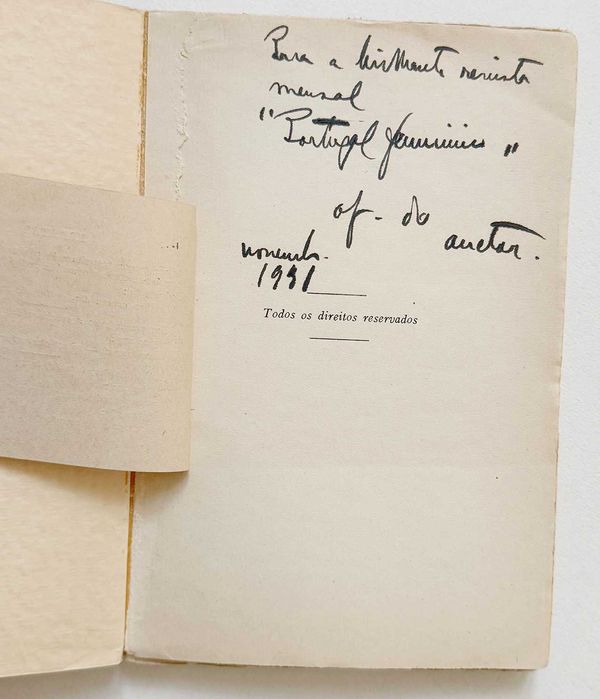 Para a brilhante revista
mensal
"Portugal feminino"
of. do
auctor.
novembr.
1931
Todos os direitos reservados